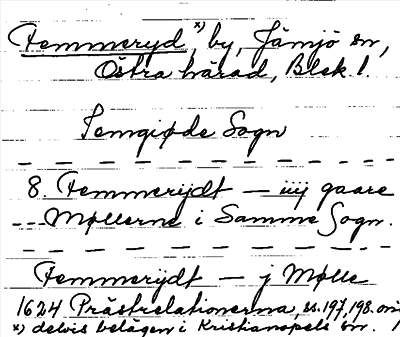 Femmeryd x), by, Jämjö sn,
Östra härad, Blek l.
Semgiøde Sogn
8. Femmerijdt — iiij gaare
--- Møllerne i Samme Sogn.
Femmerijdt — j Mølle
1624 Prästrelationerna, ss. 197, 198.
x) delvis belägen i Kristianopels sn.